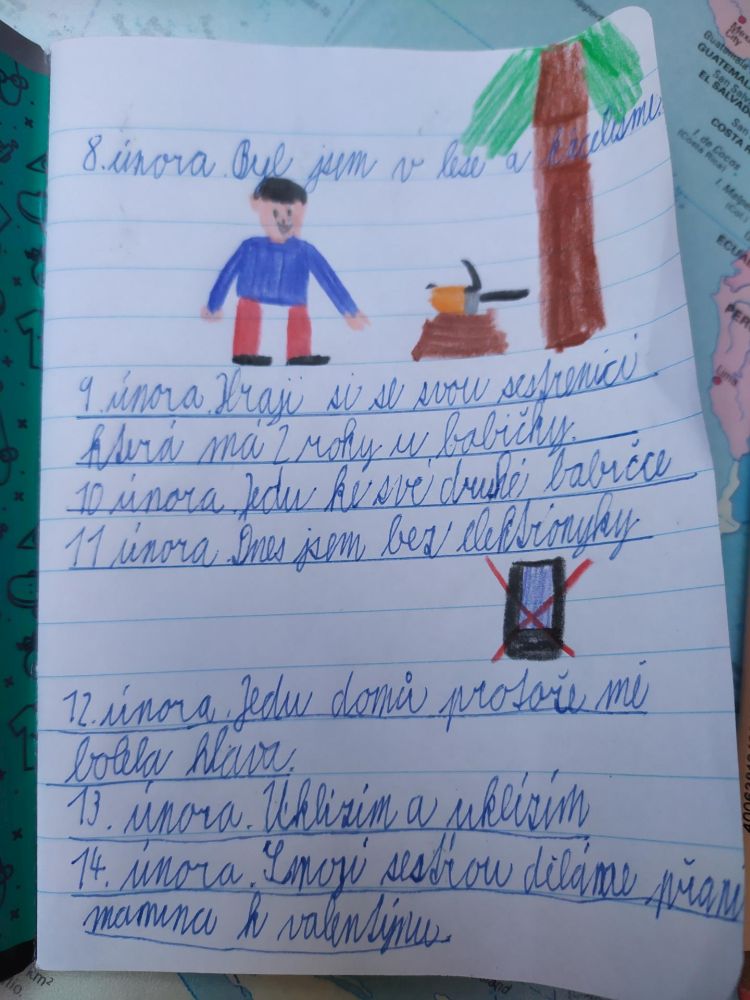 8. února. Byl jsem v lese a káceli sme.
9. února. Hraji si se svou sestřenicí
která má 2 roky u babičky.
10 února. Jedu ke své druhé babičce
11 února. Dnes jsem bez elektronyky
12. února. Jedu domů protože mě
bolela hlava.
13. února. Uklízím a uklízím
14. února. S mojí sestrou děláme přaní
mamince k valentýnu.
GUATEMALA
EL SALVADOR
COSTA R
I. de Cocos
(Costa Rica)
ECUA
PER
km²